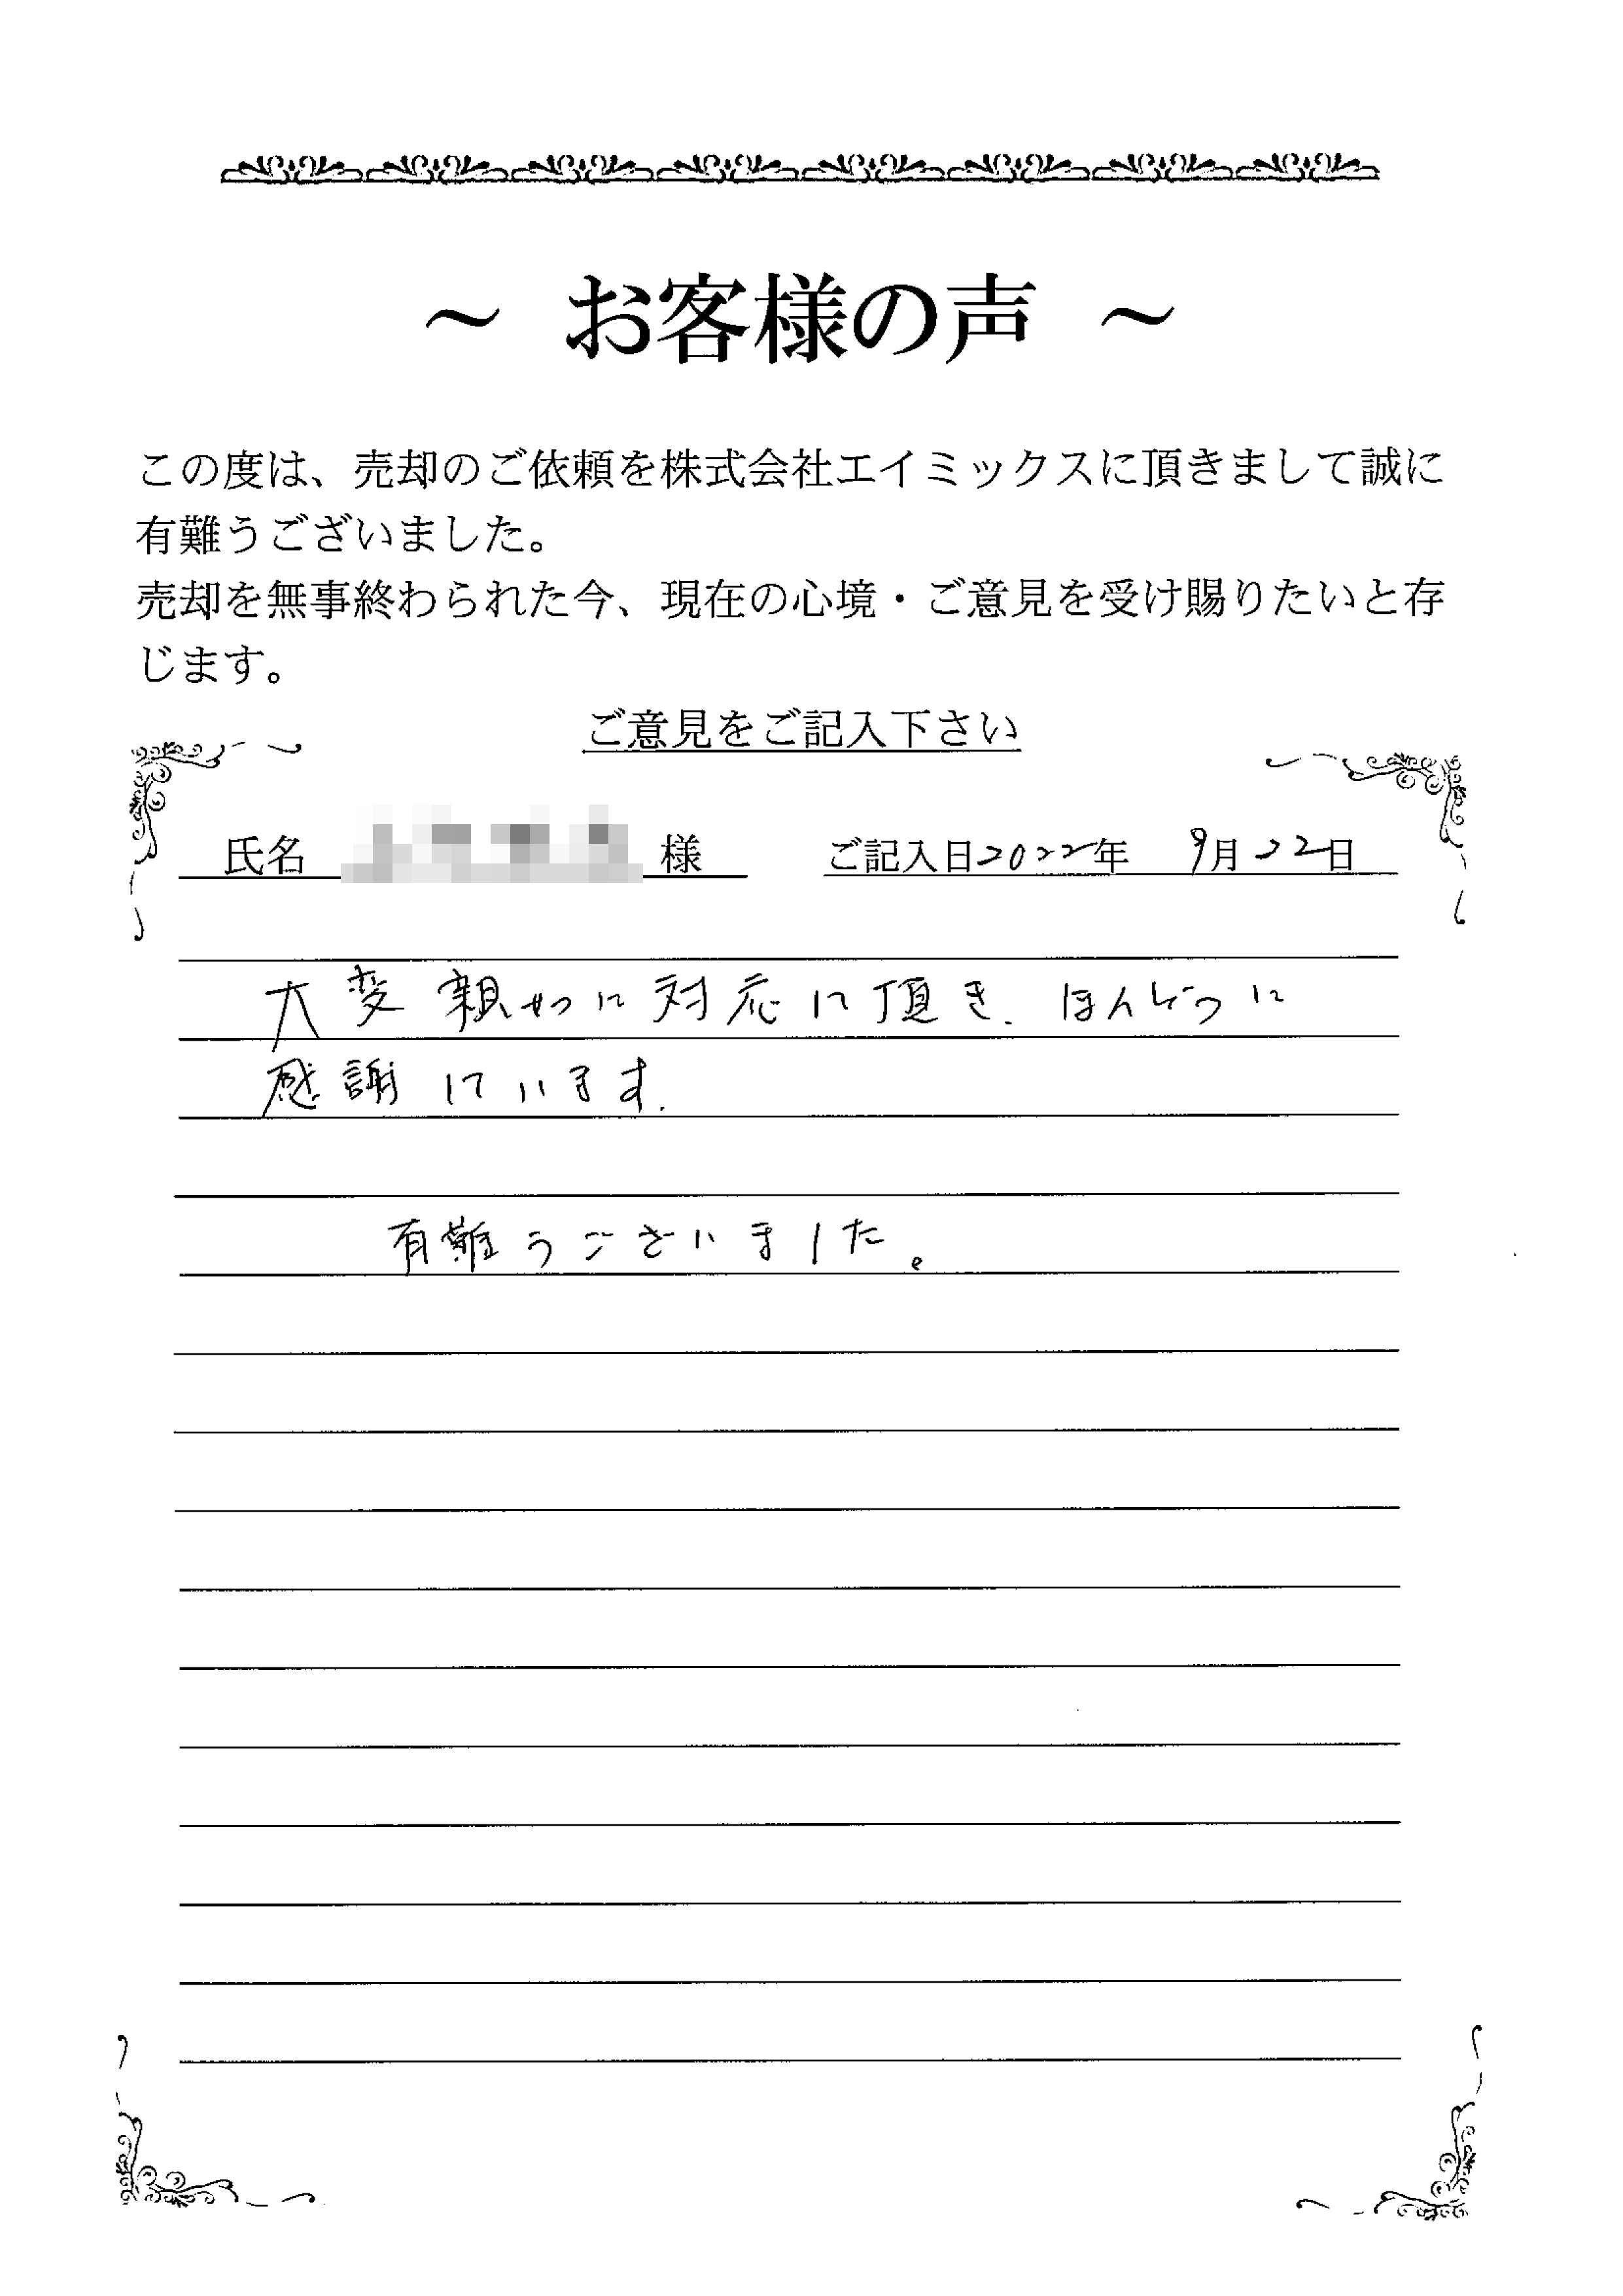 ～ お客様の声 ～
この度は、売却のご依頼を株式会社エイミックスに頂きまして誠に
有難うございました。
売却を無事終わられた今、現在の心境・ご意見を受け賜りたいと存
じます。
ご意見をご記入下さい
氏名 様 ご記入日2022年 9月22日
大変親切に対応に頂き、ほんとうに
感謝しています。
有難うございました。